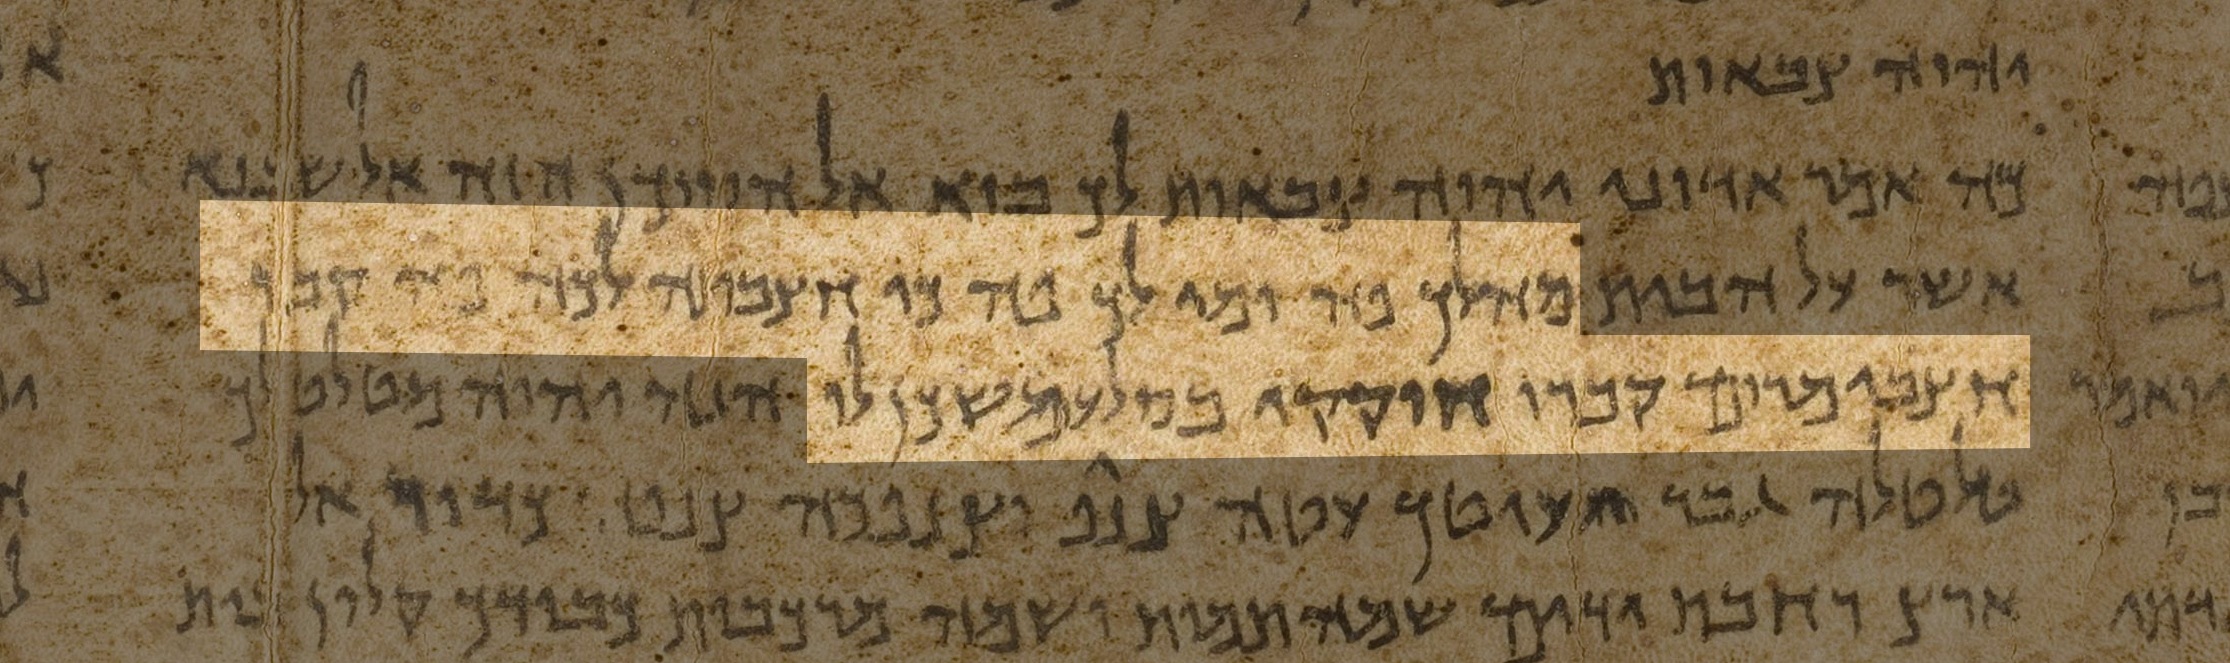 יהוה צבאות
כה אמר אדוני יהוה צבאות לך בוא אל הסוכן הזה אל שבנא
אשר על הבית מה לך פה ומי לך פה כי חצבתה לכה פה קבר
חצבי מרום קברו חוקקי בסלע משכן לו הנה יהוה מטלטלך
טלטלה גבר יעוטך עטה צנוף יצנפכה צנפת כדור אל
ארץ רחבת ידים שמה תמות ושמה מרכבות כבודך קלון בית